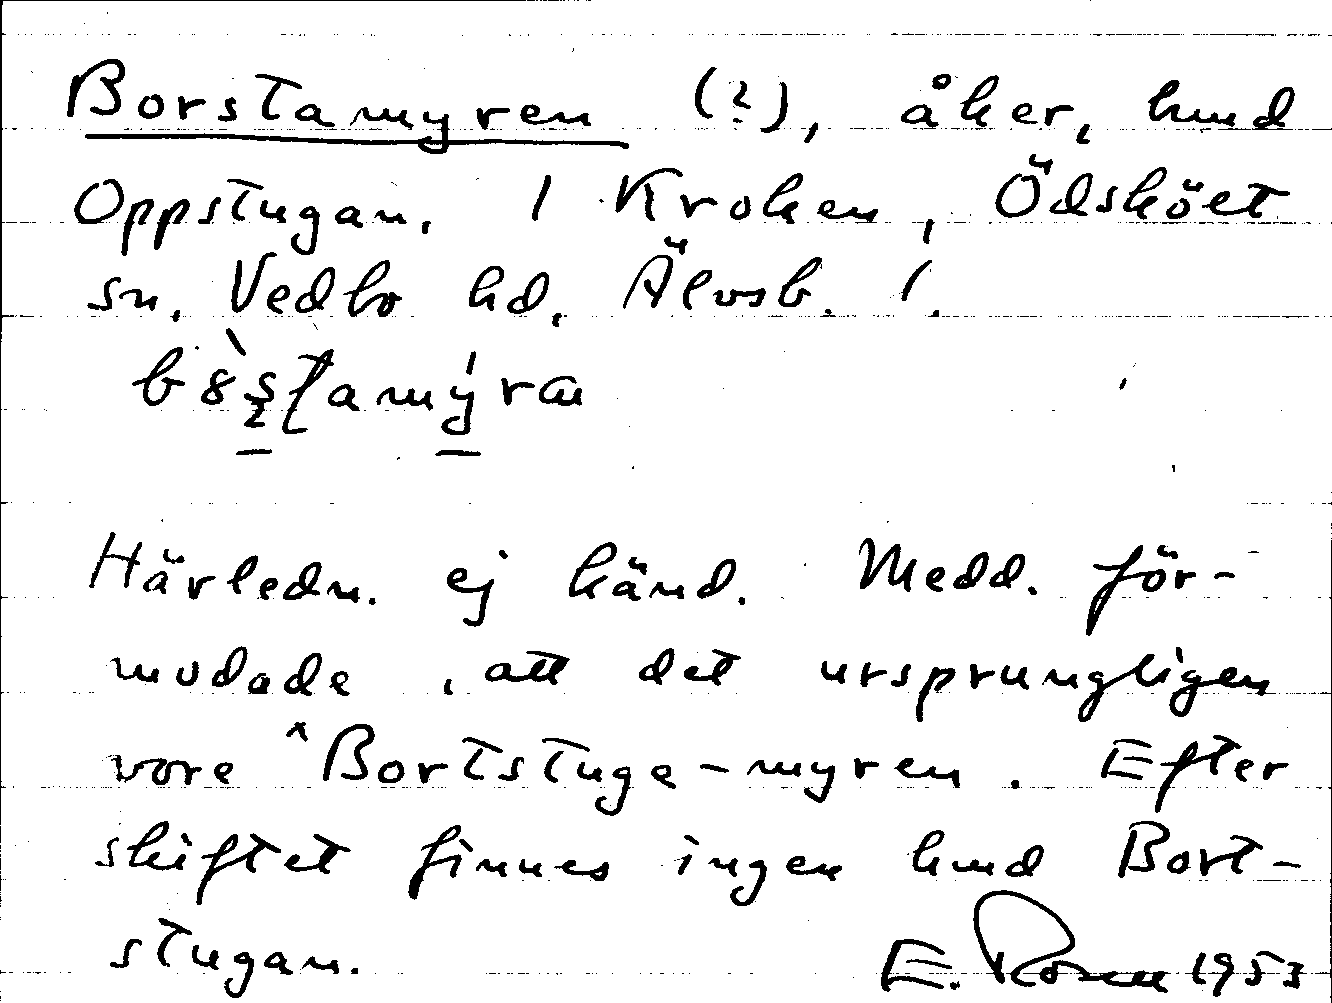 Borstamyren (?), åker, hmd
Oppstugan, 1 Kroken, Ödsköet
sn, Vedbo hd, Älvsb. l.
Härledn. ej känd. Medd. för-
modade, att det ursprungligen
vore ^Bortstuge-myren. Efter
skiftet finnes ingen hmd Bort-
stugan. E. Rosen 1953